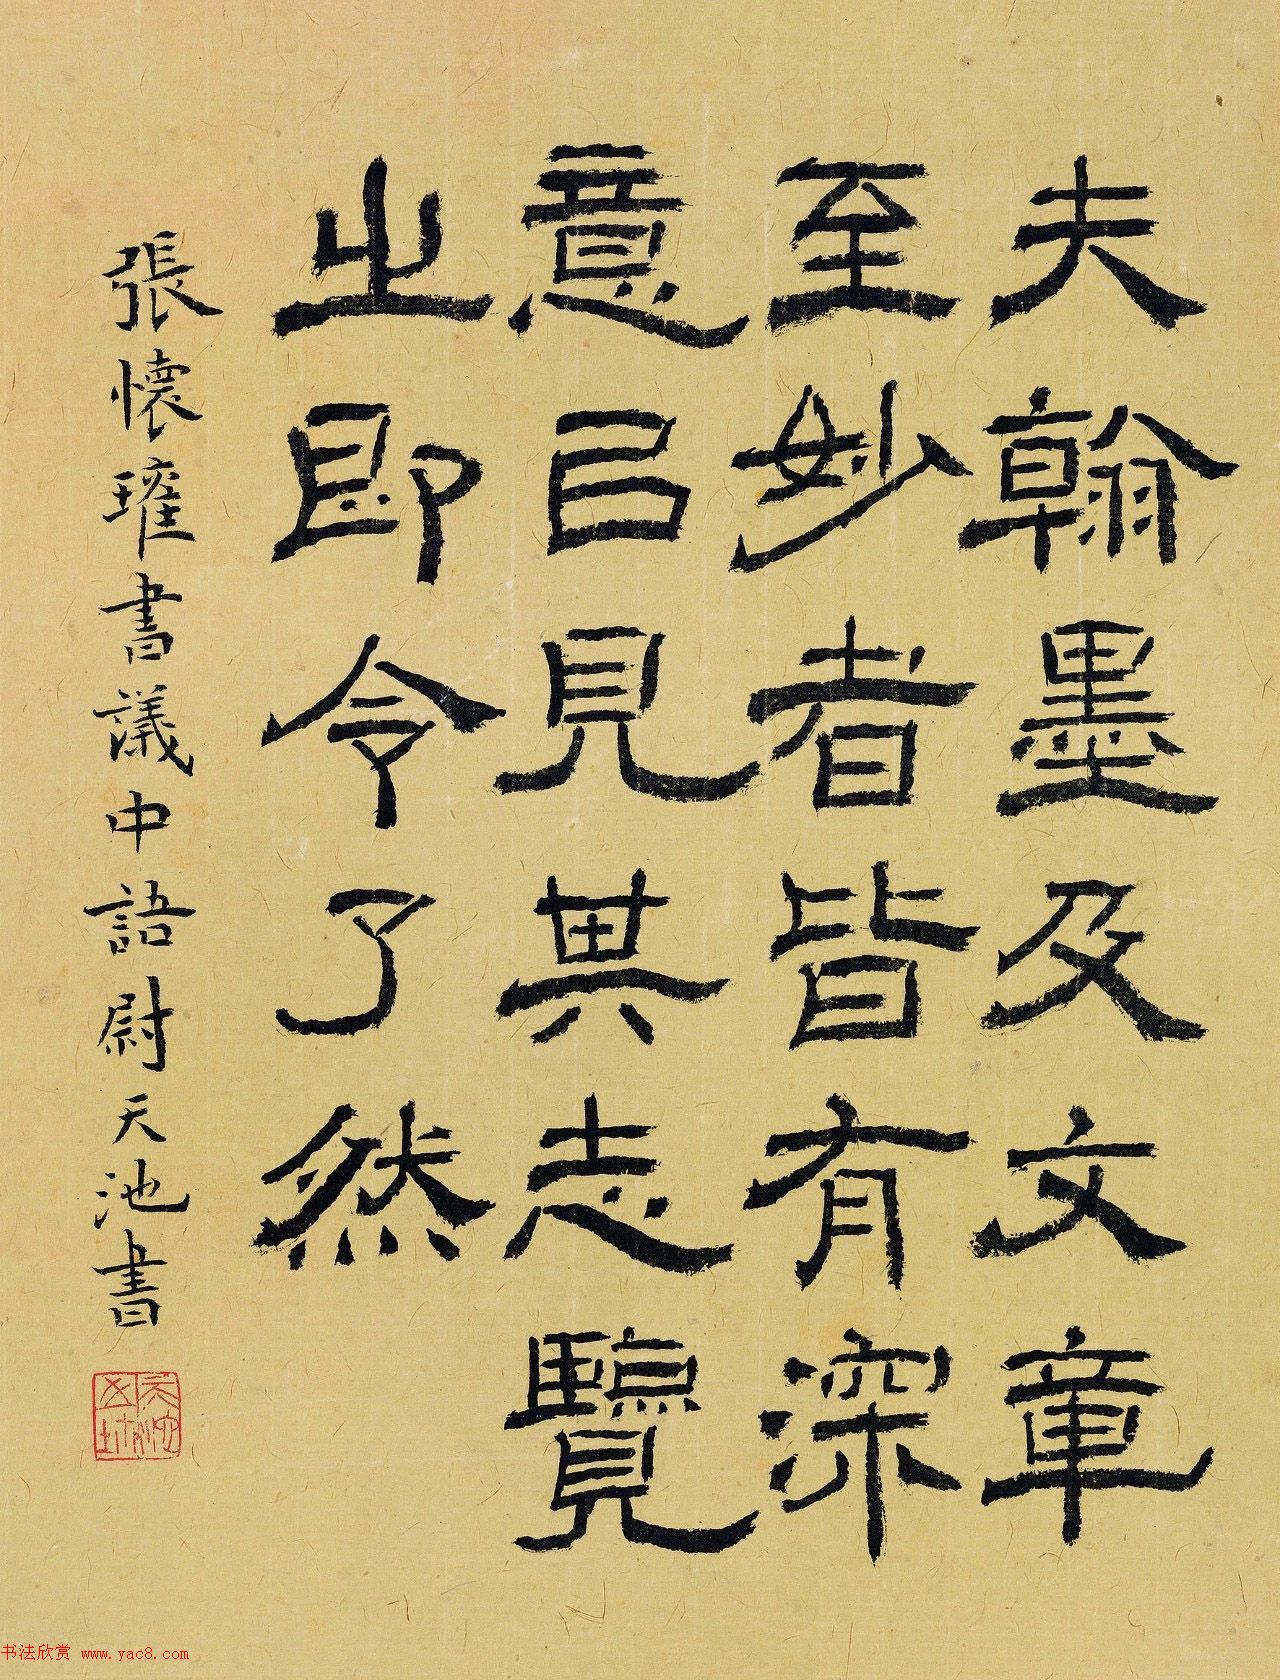 夫翰墨及文章
至妙者皆有深
意㠯見其志覽
之即令了然
張懷瓘書議中語尉天池書
书法欣赏 www.yac8.com